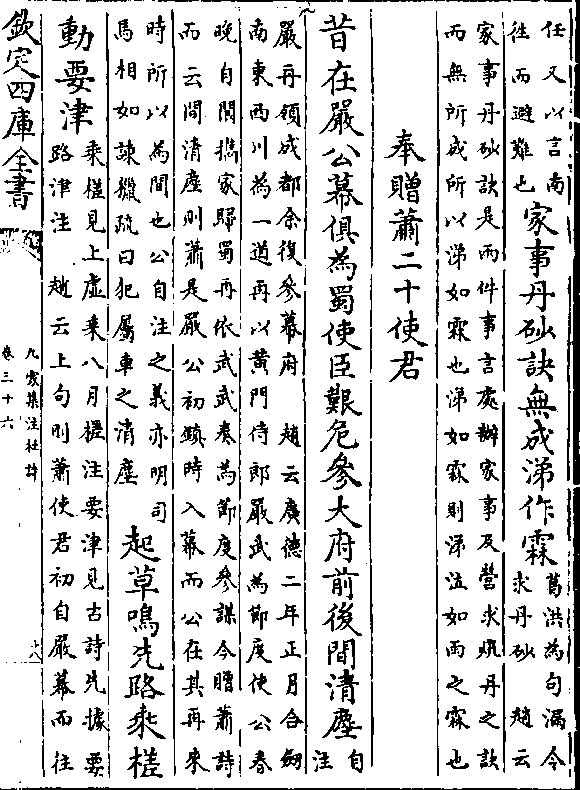 任又以言南
往而避難也
家事丹砂訣無成涕作霖
葛洪為句漏令
求丹砂　趙云
家事丹砂訣是兩件事言處辦家事及營求燒丹之訣
而無所成所以涕如霖也涕如霖則涕泣如雨之霖也
奉贈蕭二十使君
昔在嚴公幕俱為蜀使臣艱危參大府前後間清塵
自
注
嚴再領成都余復參幕府　趙云廣德二年正月合劒
南東西川為一道再以黃門侍郎嚴武為節度使公春
晚自閬攜家歸蜀再依武武奏為節度參謀今贈蕭詩
而云間清塵則蕭是嚴公初鎮時入幕而公在其再來
時所以為間也公自注之義亦明司
馬相如諫獵疏曰犯屬車之清塵
起草鳴先路乘槎
動要津
乘槎見上虛乘八月槎注要津見古詩先據要
路津注　趙云上句則蕭使君初自嚴幕而往
欽定四庫全書
九家集注杜詩
卷三十六
十八